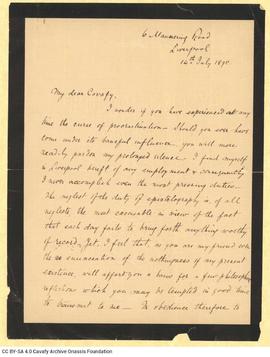 6 Mannering Road
Liverpool
14th July 1890.
My dear Cavafy,
I wonder if you have experienced at any
time the curse of procrastination – Should you ever have
come under its baneful influence you will more
readily pardon my prolonged silence. I find myself
in Liverpool bereft of my employment & consequently
I never accomplish even the most pressing duties –
The neglect of the duty of epistolography is, of all
neglects, the most excusable in view of the fact
that each day fails to bring forth anything worthy
of record. Yet, I feel that, as you are my friend even
the enunciation of the nothingness of my present
existence, will afford you a basis for a few philosophic
reflections which you may be tempted in good time
to transmit to me – In obedience therefore to
CC BY-SA 4.0 Cavafy Archive Onassis Foundation